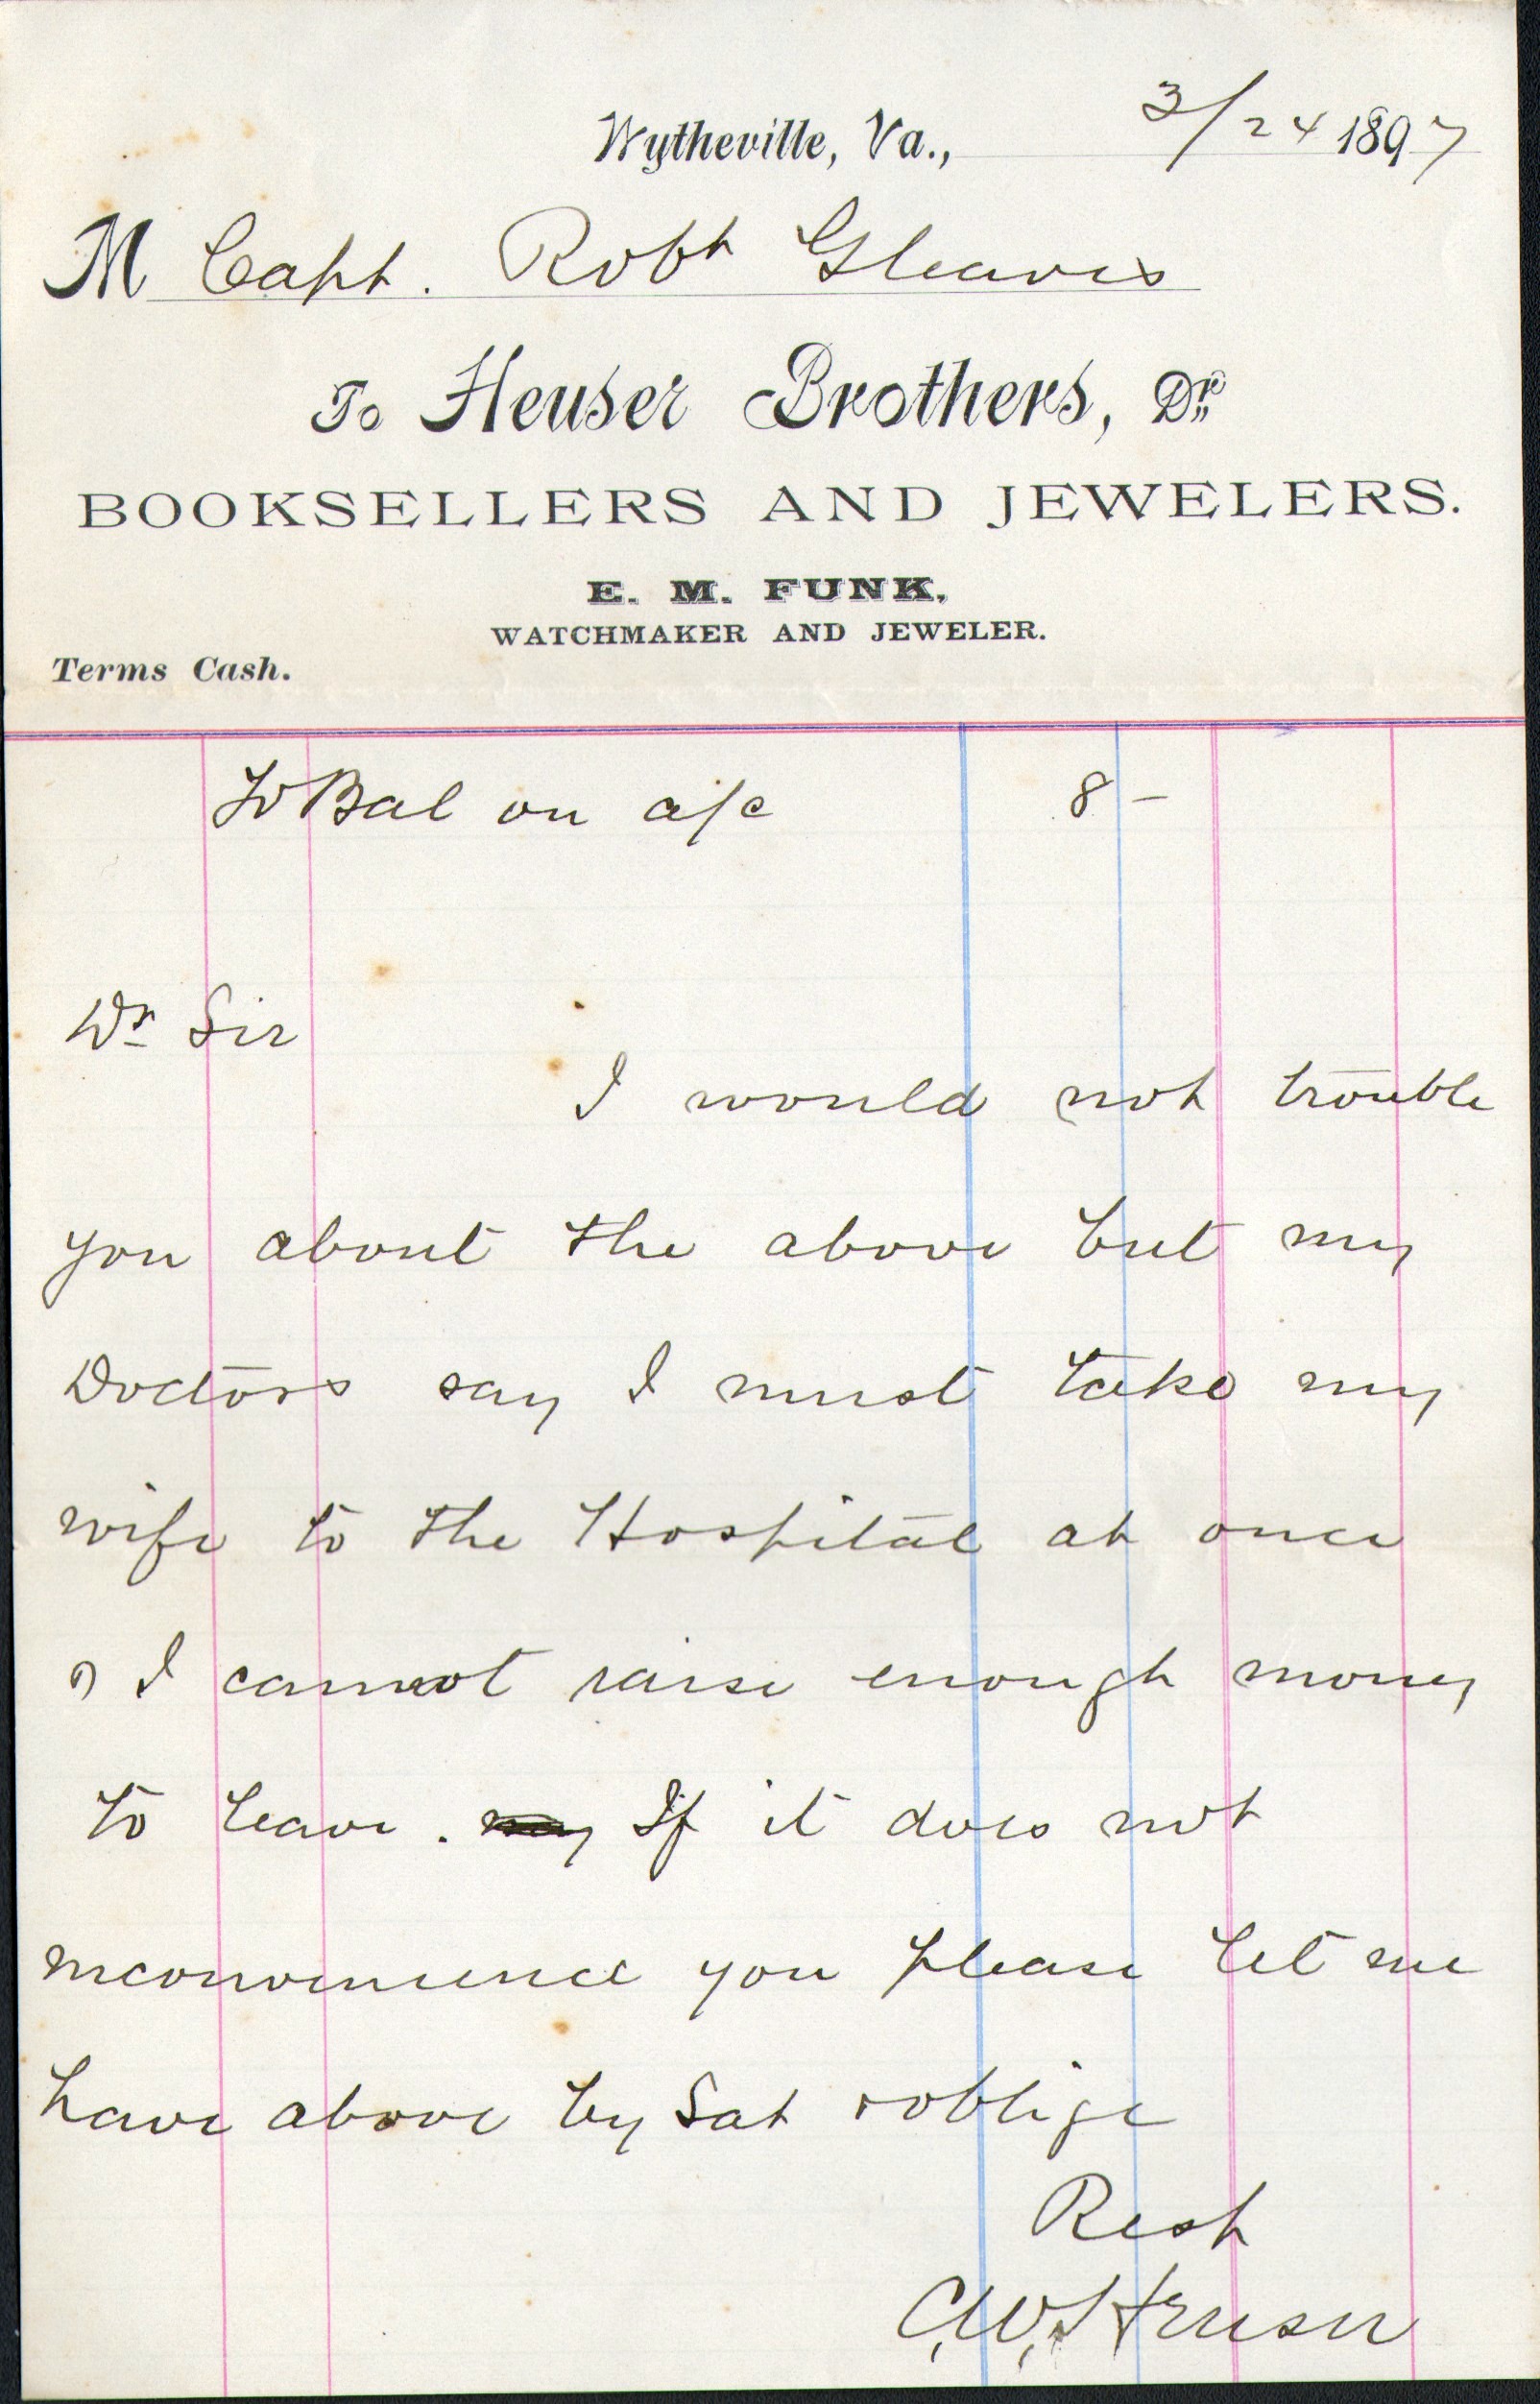 Wytheville, Va., 3/24 1897
M Capt. Robt Gleaves
To Heuser Brothers, Dr.
BOOKSELLERS AND JEWELERS.
E. M. FUNK,
WATCHMAKER AND JEWELER.
Terms Cash.
To Bal on a/c 8 –
Dr Sir
I would not trouble
you about the above but my
Doctors say I must take my
wife to the Hospital at once
& I cannot raise enough money
to leave. If it does not
inconvenience you please let me
have above by Sat & oblige
Resp
C.W. Heuser